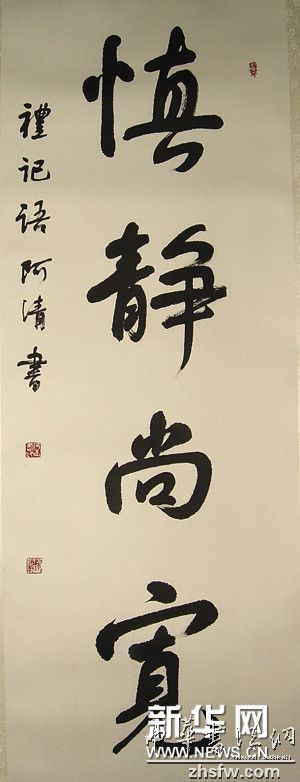 慎静尚寛
禮记语阿清書
新华网
WWW.NEWS.CN
zhsfw.com